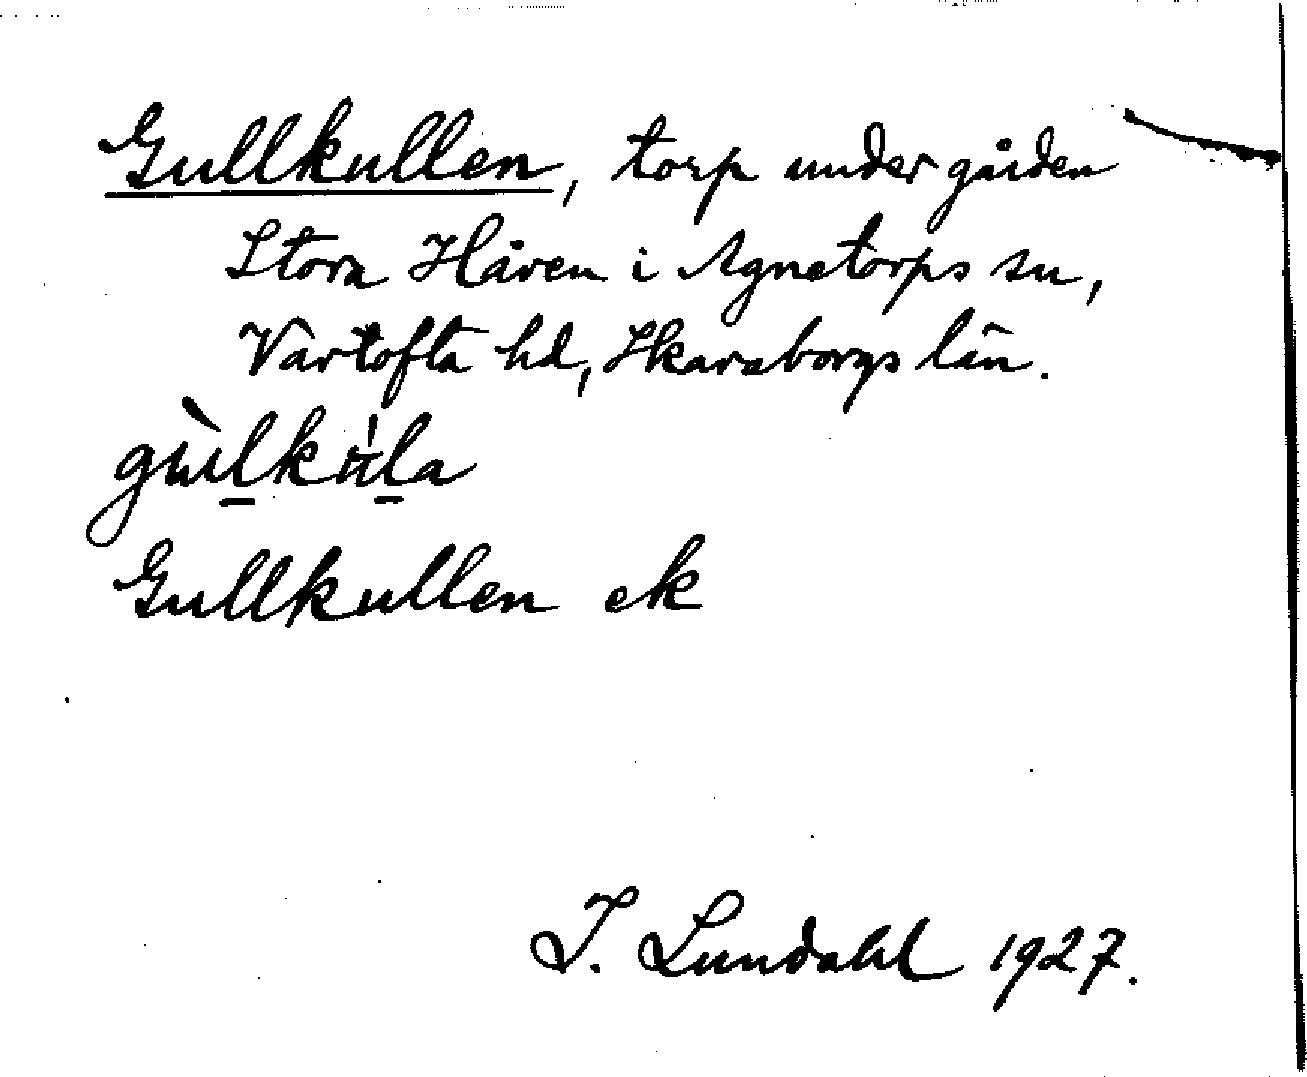 Gullkullen, torp under gården
Stora Håven i Agnetorps sn,
Vartofta hd, Skaraborgs län.
Gullkullen ek
I. Lundahl 1927.